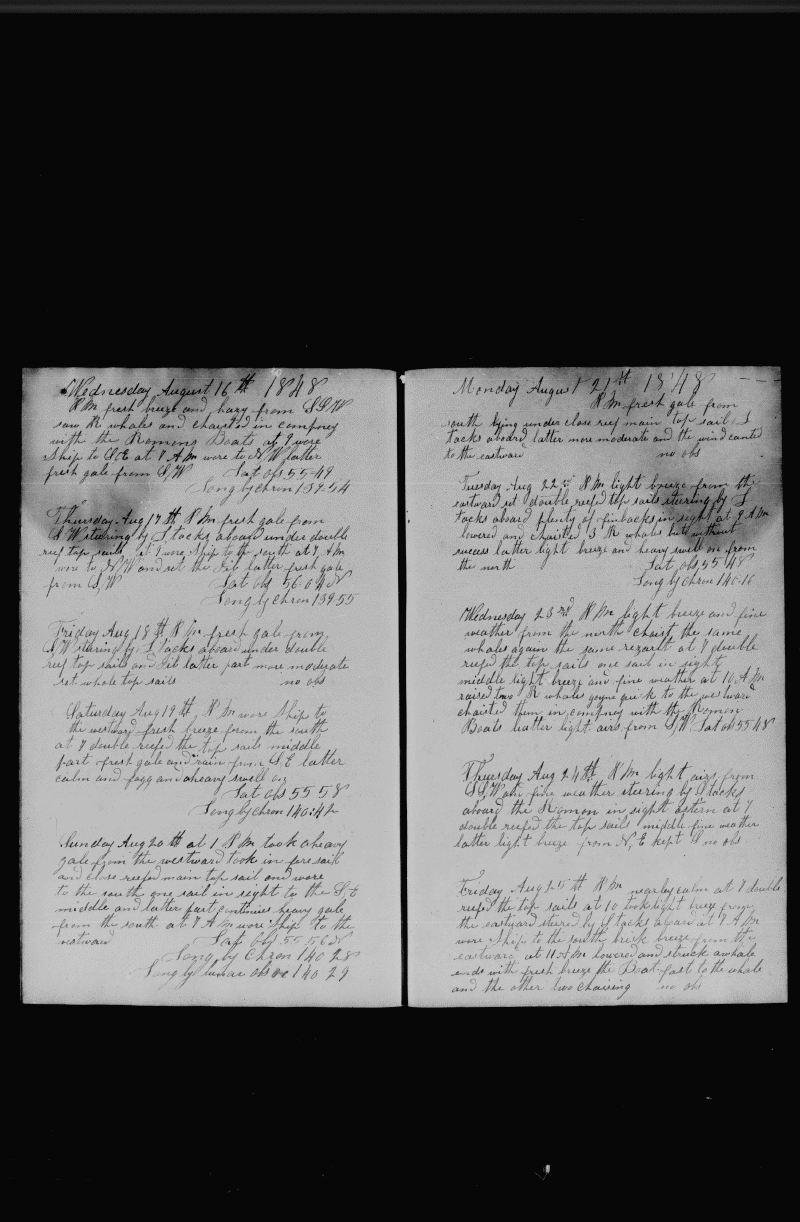 Wednesday August 16th 1848
P M fresh breeze and hazy from SSW
saw R whales and chaisted in compney
with the Romons Boats at 9 wore
Ship to S E at 8 A M wore to N W latter
fresh gale from S W Lat obs 55-49
Long by Chron 139-54
Thursday Aug 17th P M fresh gale from
S W stearing by S tacks aboard under double
reef top sails at 7 wore Ship to the south at 7 A M
wore to N W and set the Jib latter fresh gale
from S W Lat obs 56-04 N
Long by Chron 139-55
Friday Aug 18th P M fresh gale from
S W staring by S tacks aboard under double
reef top sails and Jib latter part more moderate
set whole top sails no obs
Saturday Aug 19th P M wore Ship to
the westward fresh breeze from the south
at 7 double reefed the top sails middle
part fresh gale and rain from S E latter
calm and fogg and heavy swell on
Lat obs 55 58
Long by Chron 140-42
Sunday Aug 20th at 1 P M took a heavy
gale from the westward took in fore sail
and close reefed main top sail and wore
to the south one sail in sight to the S E
middle and latter part continues heavy gale
from the south at 8 A M wore Ship to the
westward Lat obs 55 56 N
Long by Chron 140 28
Long by lunar obs 140 29
Monday August 21st 1848
P M fresh gale from
south lying under close reef main top sail S
tacks aboard latter more moderate and the wind canted
to the eastward no obs
Tuesday Aug 22nd P M light breeze from the
eastward set double reefed top sails steering by S
tacks aboard plenty of finbacks in sight at 9 A M
lowered and chaisted 3 R whales but without
success latter light breeze and heavy swell on from
the north Lat obs 55 48
Long by Chron 140-16
Wednesday 23rd P M light breeze and fine
weather from the north chaist the same
whales again the same rezarlt at 7 double
reefed the top sails one sail in sight
middle light breeze and fine weather at 10 A M
raised two R whales goyne quick to the westward
chaisted them in compney with the Romon
Boats latter light airs from S W Lat obs 55 48
Thursday Aug 24th P M light airs from
SSW fine weather steering by S tacks
aboard the Romon in sight astern at 7
double reefed the top sails middle fine weather
latter light breeze from N E kept S no obs
Friday Aug 25th P M nearly calm at 7 double
reefed the top sails at 10 took light breez from
the eastward steered by S tacks aboard at 7 A M
wore Ship to the south brisk breeze from the
eastward at 11 A M lowered and struck a whale
ends with fresh breeze the Boat fast to the whale
and the other two chaising no obs